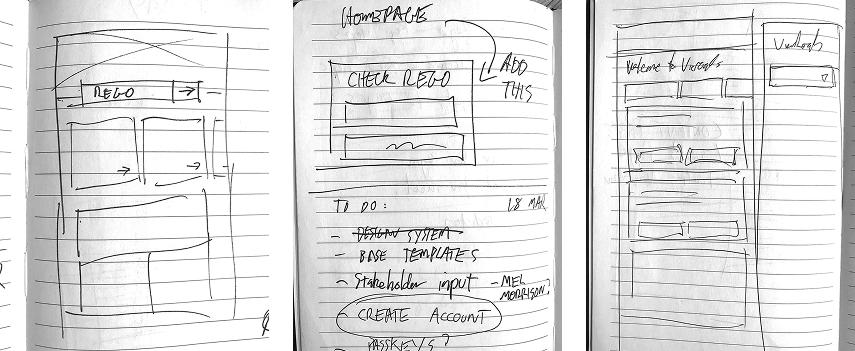 REGO →
→
→
HOMEPAGE
CHECK REGO
ADD
THIS
TO DO:
18 MAR
- DESIGN SYSTEM
- BASE TEMPLATES
- Stakeholder input
- MEL
MORRISON?
- CREATE ACCOUNT
PASSKEYS?
Welcome to VicRoads
VicRoads